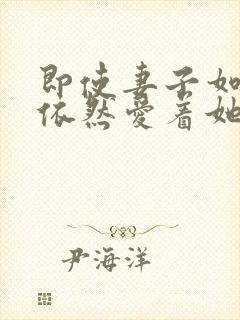 即使妻子如
依然爱着她
尹海洋